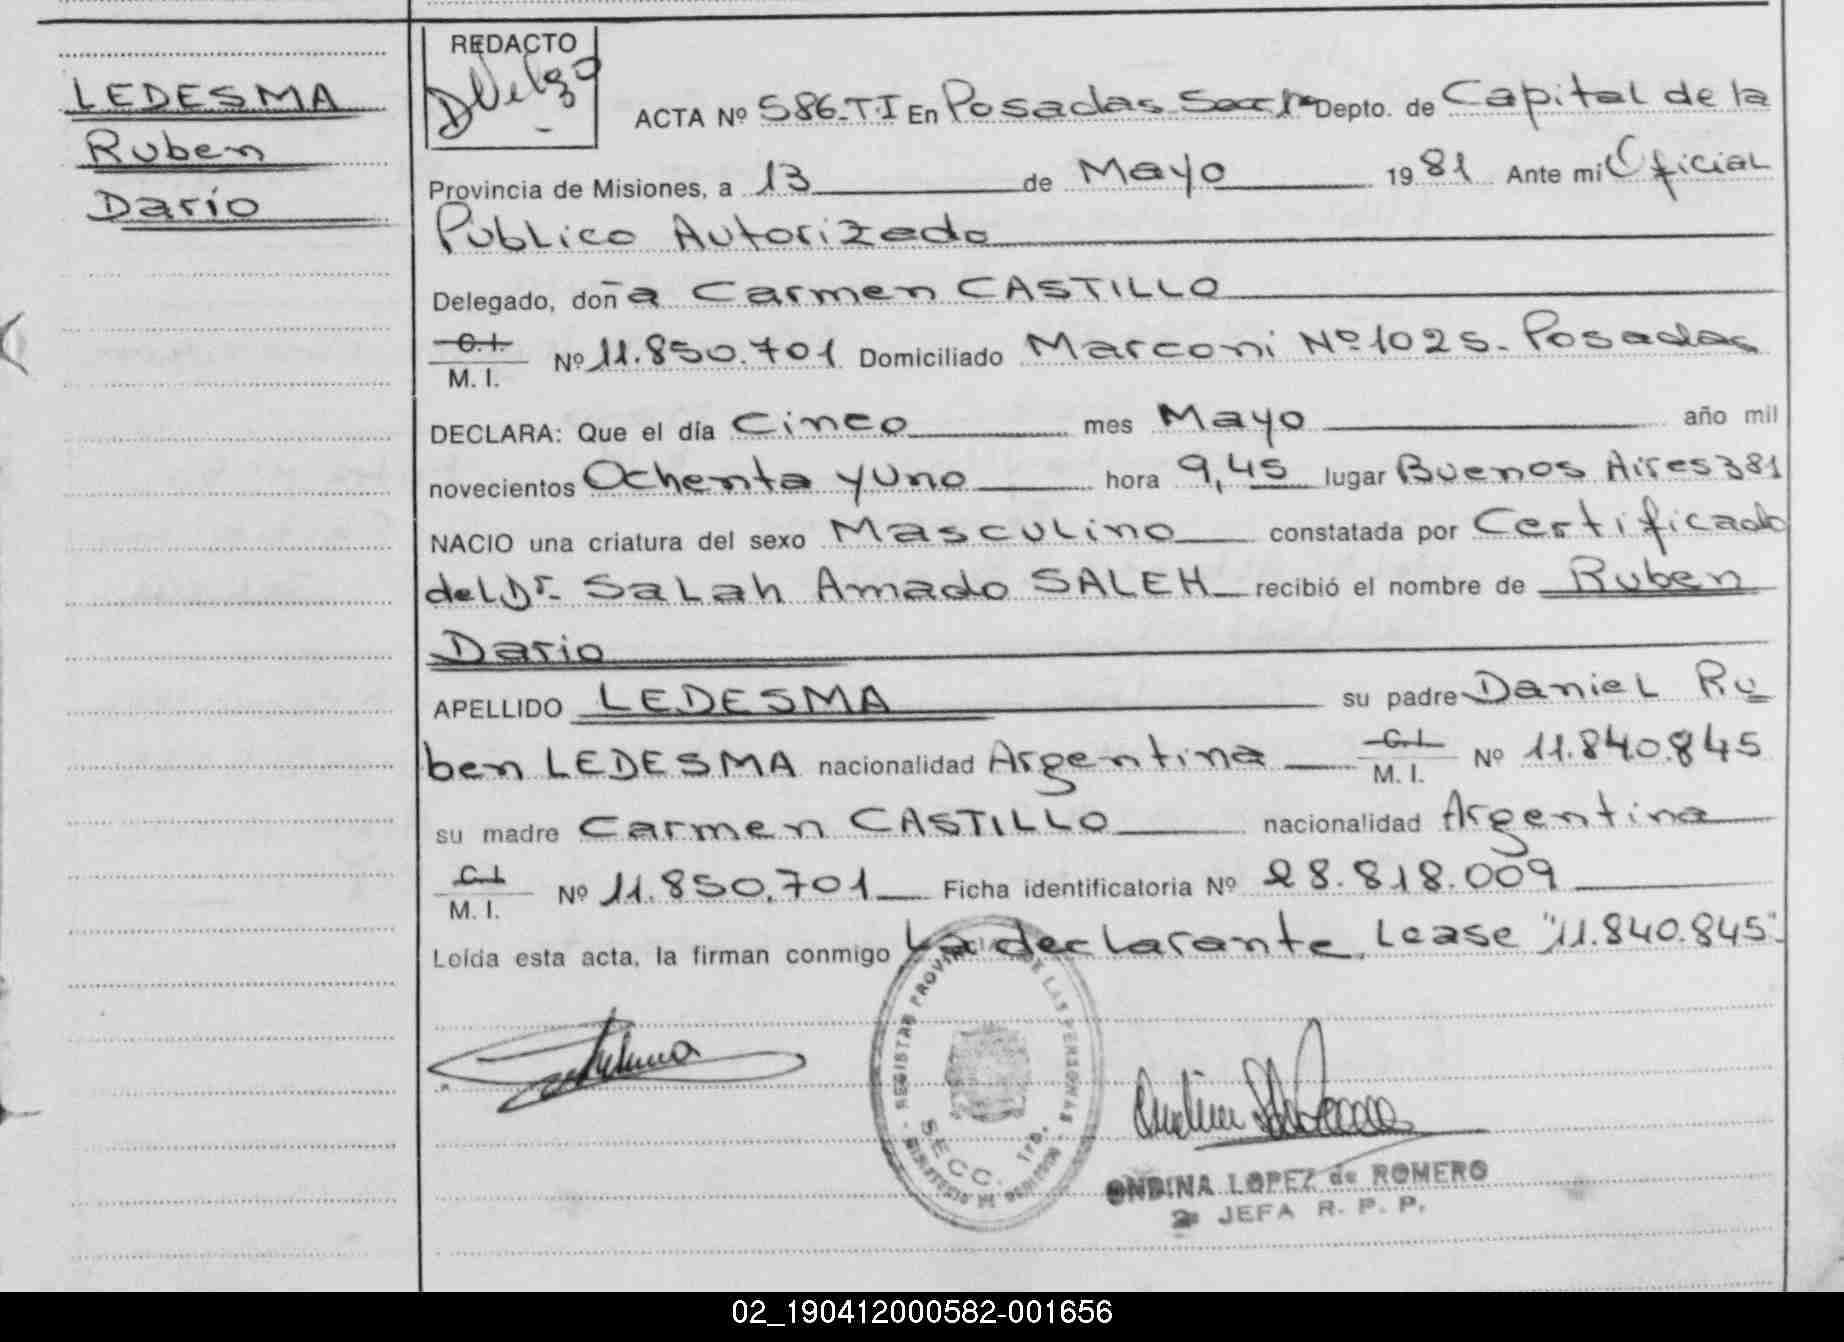 LEDESMA
Ruben
Darío
REDACTO
ACTA Nº 586-T.I En Posadas Secc 1ª Depto. de Capital de la
Provincia de Misiones, a 13 de Mayo 1981 Ante mi Oficial
Publico Autorizado
Delegado, doña Carmen CASTILLO
C.I.
M. I. Nº 11.850.701 Domiciliado Marconi Nº 1025- Posadas
DECLARA: Que el día Cinco mes Mayo año mil
novecientos Ochenta y Uno hora 9,45 lugar Buenos Aires 381
NACIO una criatura del sexo Masculino constatada por Certificado
del Dr. Salah Amado SALEH recibió el nombre de Ruben
Dario
APELLIDO LEDESMA su padre Daniel Ru
ben LEDESMA nacionalidad Argentina C.I. M. I. Nº 11.840.845
su madre Carmen CASTILLO nacionalidad Argentina
C.I.
M. I. Nº 11.850.701 Ficha identificatoria Nº 28.818.009
Leída esta acta, la firman conmigo La declarante. Lease "11.840.845".
REGISTRO PROVINCIAL DE LAS PERSONAS
SECC. 1RA.
ONDINA LOPEZ de ROMERO
2ª JEFA R. P. P.
02_190412000582-001656